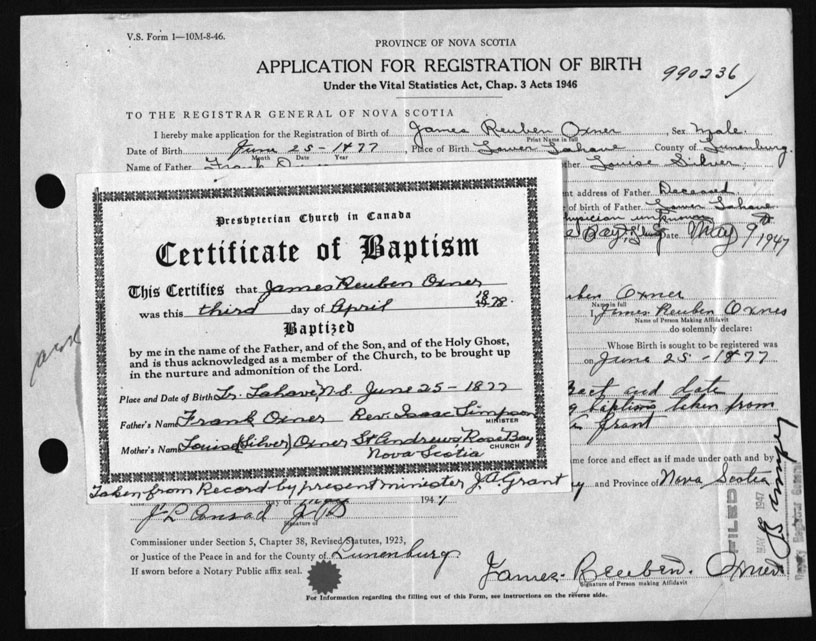 V.S. Form 1—10M-8-46.
PROVINCE OF NOVA SCOTIA
APPLICATION FOR REGISTRATION OF BIRTH
Under the Vital Statistics Act, Chap. 3 Acts 1946
990236
TO THE REGISTRAR GENERAL OF NOVA SCOTIA
I hereby make application for the Registration of Birth of James Reuben Oxner, Sex Male.
Print Name in full
Date of Birth June 25 - 1877, Place of Birth Lower Lahave County of Lunenburg.
Month Date Year
Name of Father Frank Louise Silver
nt address of Father Deceased
of birth of Father Lower Lahave
hysician unknown
Bay, Date May 9 1947
Presbyterian Church in Canada
Certificate of Baptism
This Certifies that James Reuben Oxner
was this third day of April 1878.
Baptized
by me in the name of the Father, and of the Son, and of the Holy Ghost,
and is thus acknowledged as a member of the Church, to be brought up
in the nurture and admonition of the Lord.
Place and Date of Birth Lr. Lahave, N.S. June 25 - 1877
Father's Name Frank Oxner Rev. Isaac Simpson
MINISTER
Mother's Name Louise (Silver) Oxner St Andrews Rose Bay
CHURCH
Nova Scotia
Taken from Record by present minister J.A. Grant
uben Oxner
Name in full
I, James Reuben Oxner
Name of Person Making Affidavit
do solemnly declare:
Whose Birth is sought to be registered was
on June 25 - 1877
and date
baptism taken from
Grant
me force and effect as if made under oath and by
y and Province of Nova Scotia
day of 1947
J L Conrad J.P.
Signature of
Commissioner under Section 5, Chapter 38, Revised Statutes, 1923,
or Justice of the Peace in and for the County of Lunenburg.
If sworn before a Notary Public affix seal.
James Reuben Oxner
Signature of Person making Affidavit
For Information regarding the filling out of this Form, see instructions on the reverse side.
FILED
MAY 1947
Deputy Registrar General